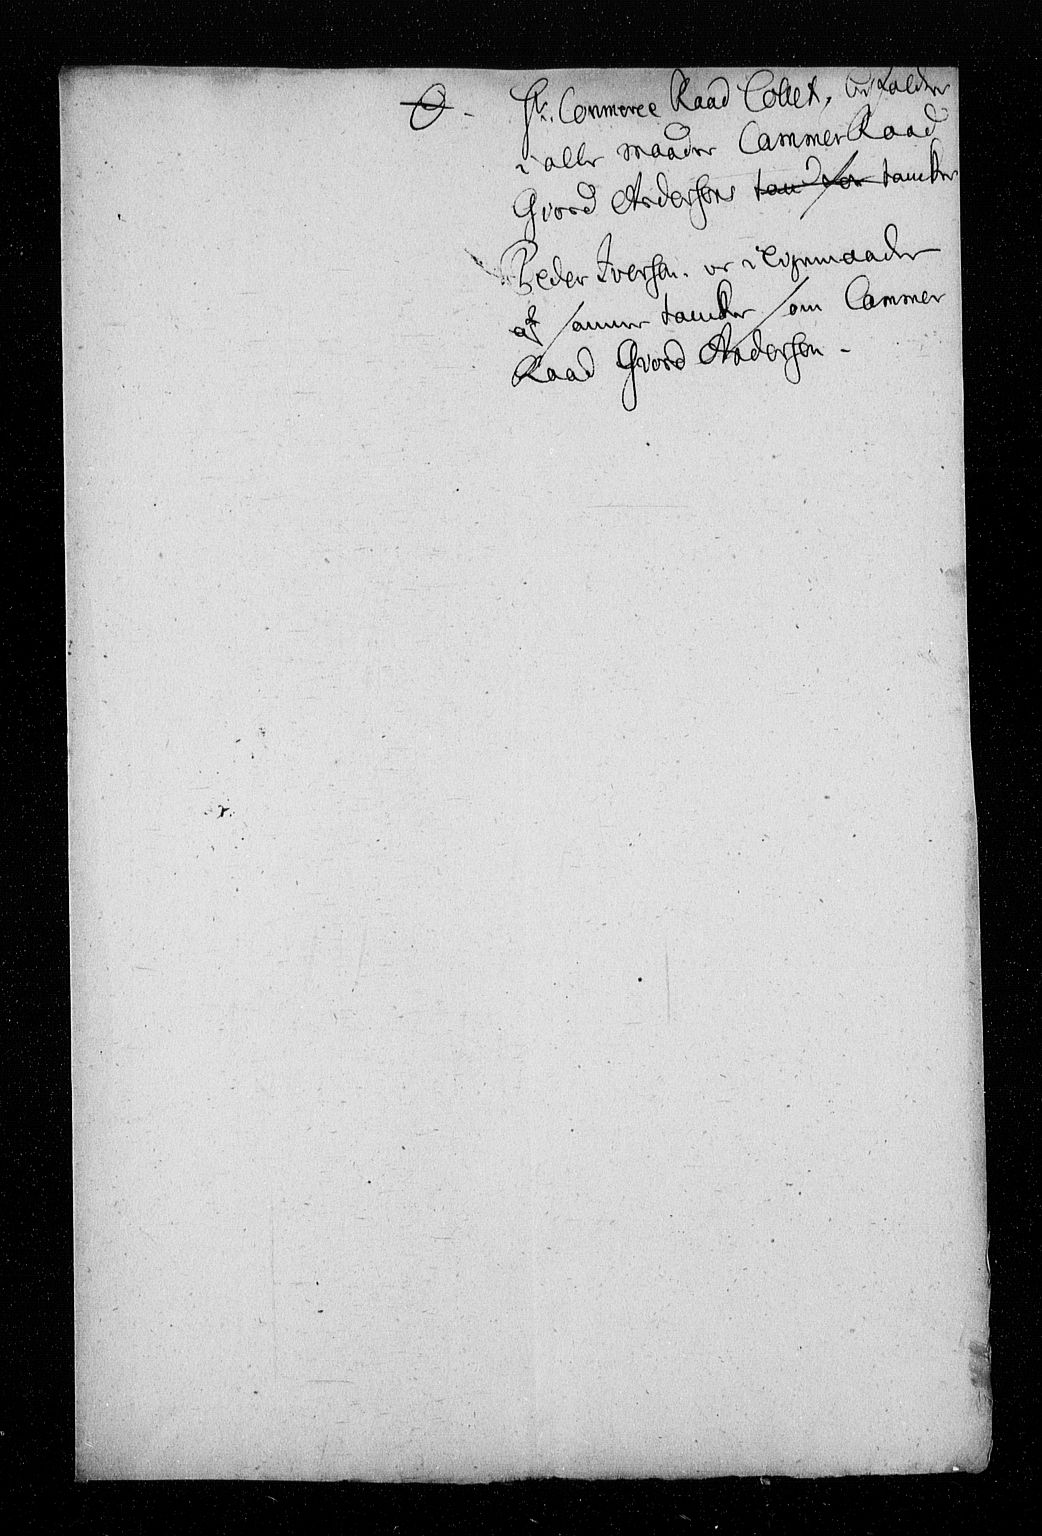 O. Hr. Commerce Raad Collet, bifalder
i alle maader Cammer Raad
Giord Andersens tancker
Peder Iversen. er i ligemaader
af samme tancker som Cammer
Raad Giord Andersen.